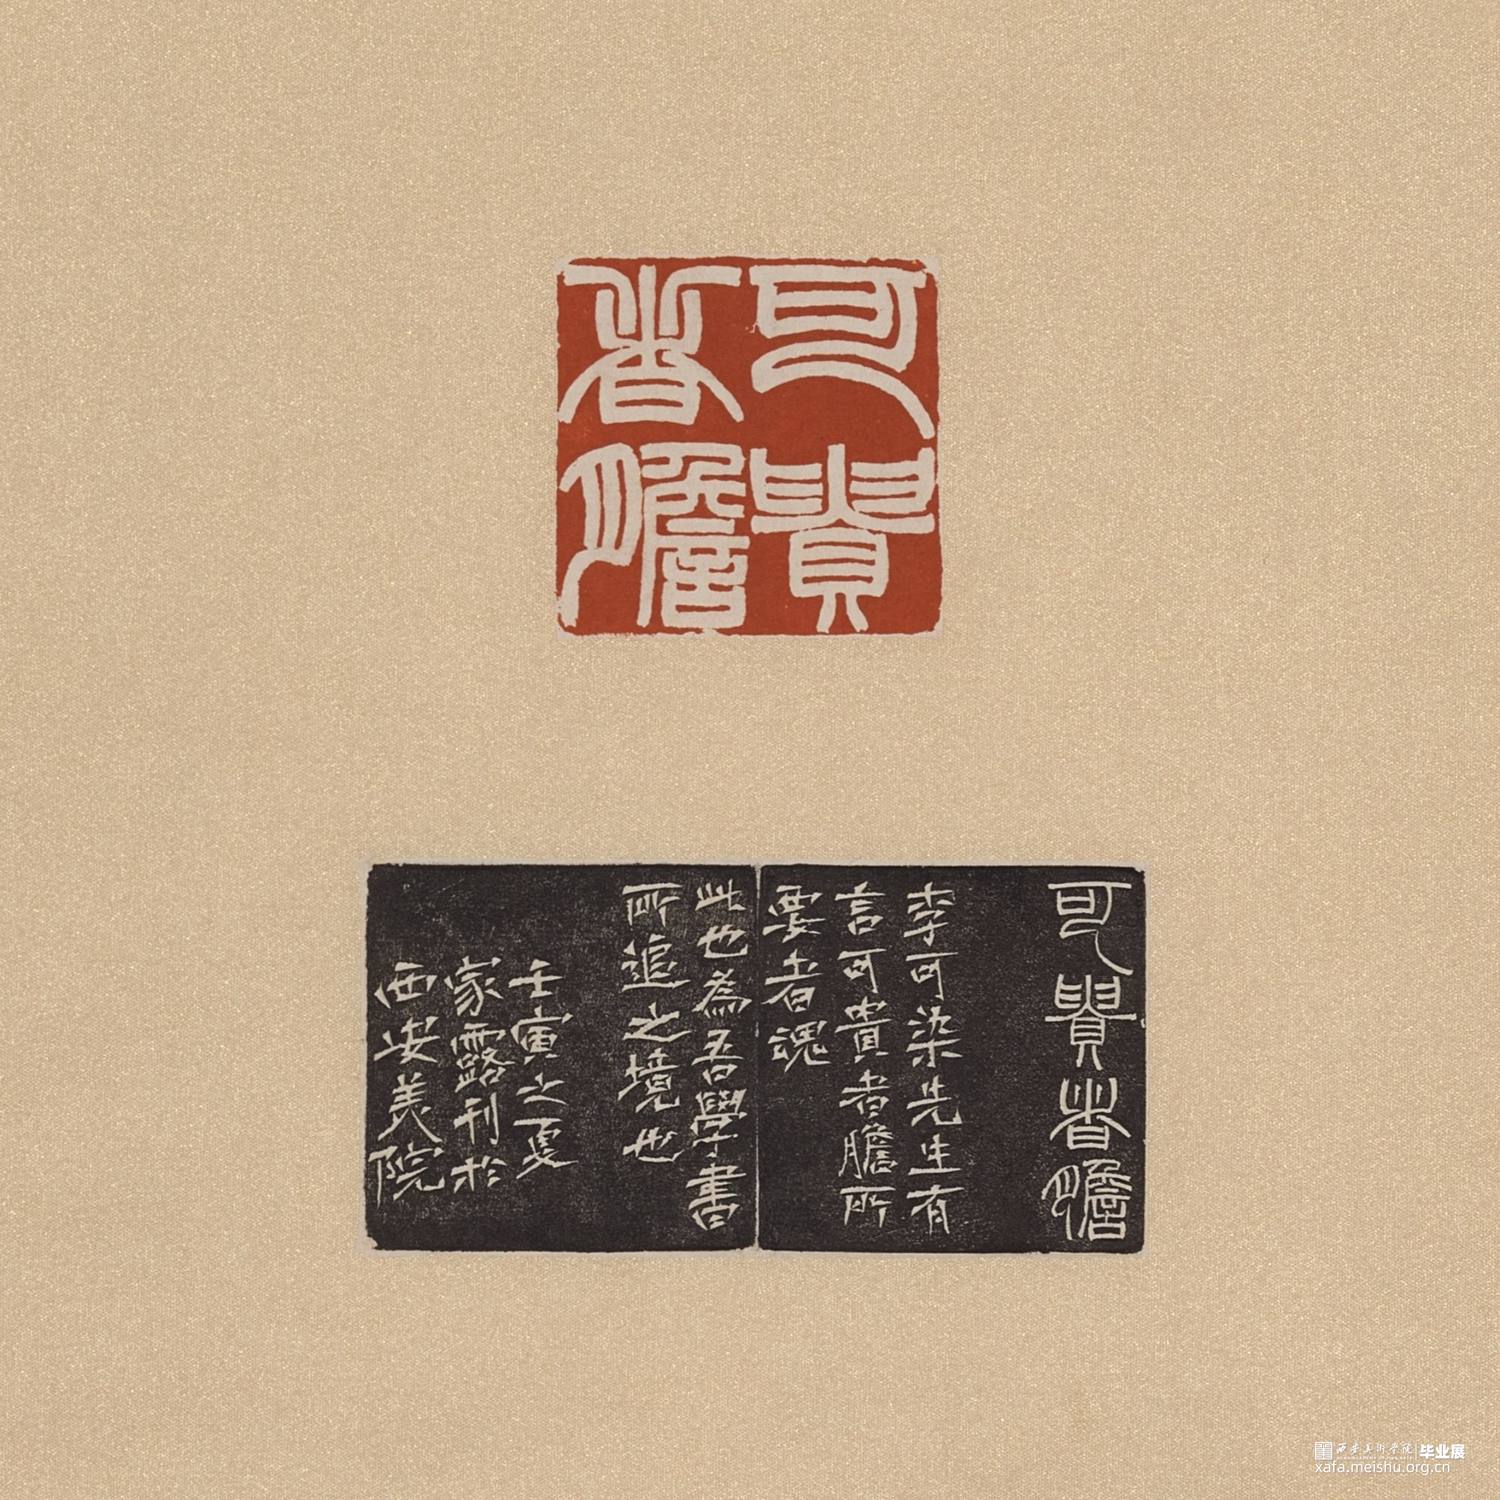 可貴
者膽
可貴者膽
李可染先生有
言可貴者膽所
要者魂
此也為吾學書
所追之境也
壬寅之夏
家露刊於
西安美院
西安美术学院 毕业展
xafa.meishu.org.cn